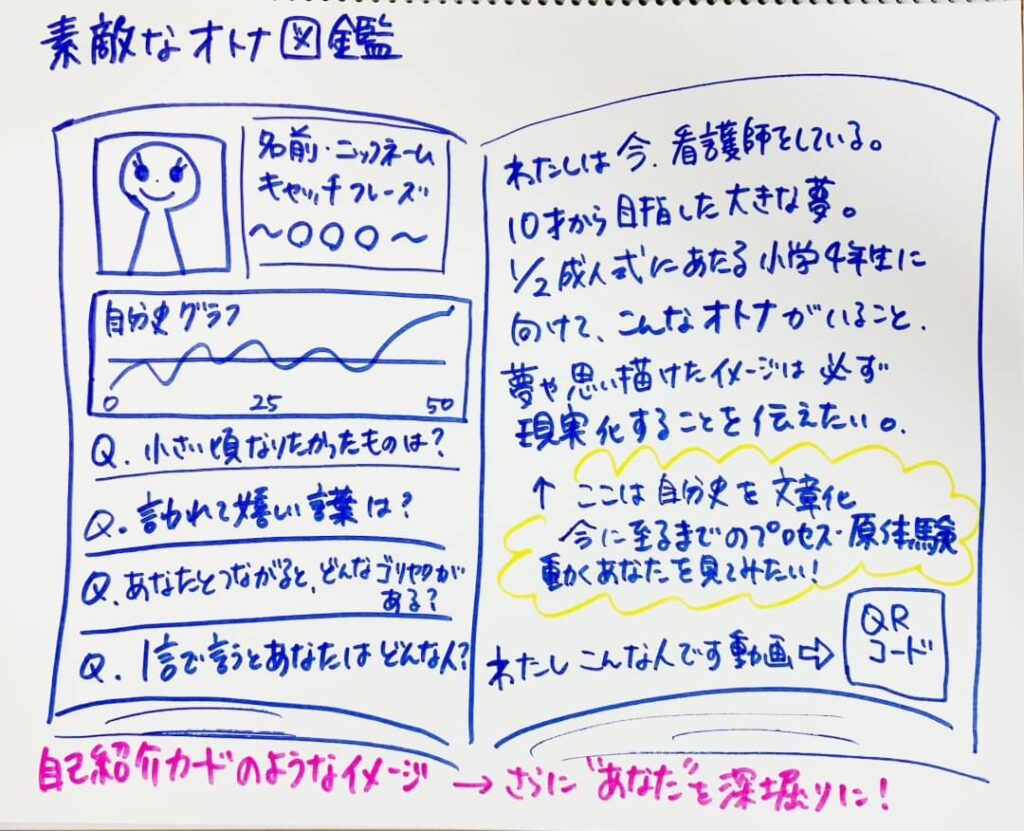 素敵なオトナ図鑑
名前・ニックネーム
キャッチフレーズ
〜○○○〜
自分史グラフ
0 25 50
Q. 小さい頃なりたかったものは?
Q. 言われて嬉しい言葉は?
Q. あなたとつながると、どんなゴリヤクが
ある?
Q. 1言で言うとあなたはどんな人?
わたしは今、看護師をしている。
10才から目指した大きな夢。
1/2成人式にあたる小学4年生に
向けて、こんなオトナがいること、
夢や思い描けたイメージは必ず
現実化することを伝えたい。
↑ ここは自分史を文章化
今に至るまでのプロセス・原体験
動くあなたを見てみたい!
わたしこんな人です動画⇨
QR
コード
自己紹介カードのようなイメージ → さらに"あなた"を深堀りに!